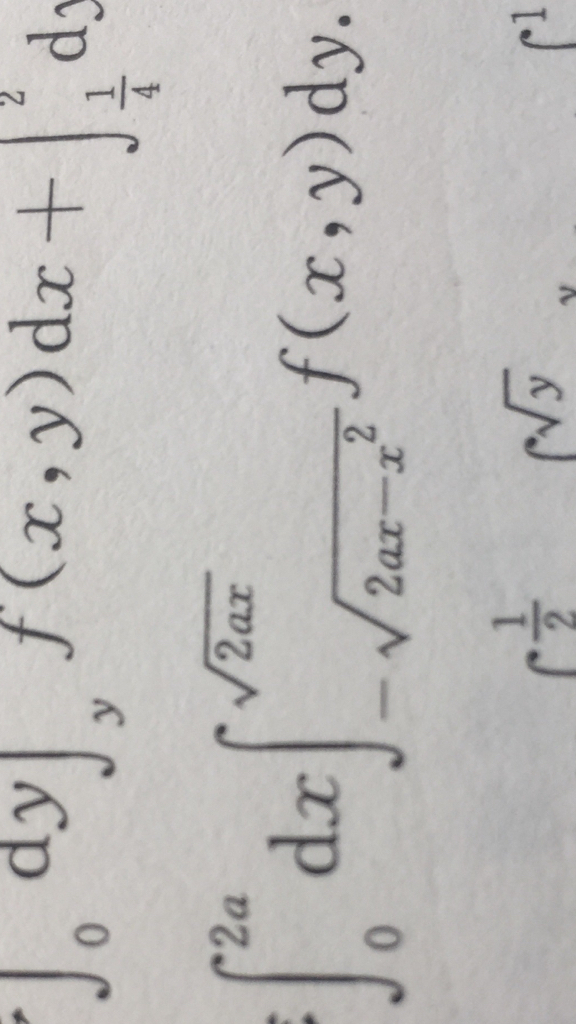 ∫₀ dy∫_y f(x,y)dx + ∫_{1/4}^2 dy
∫₀^{2a} dx∫_{-√(2ax-x²)}^{√(2ax)} f(x,y)dy.
∫^{1/2} ∫^{√y} y ∫^1